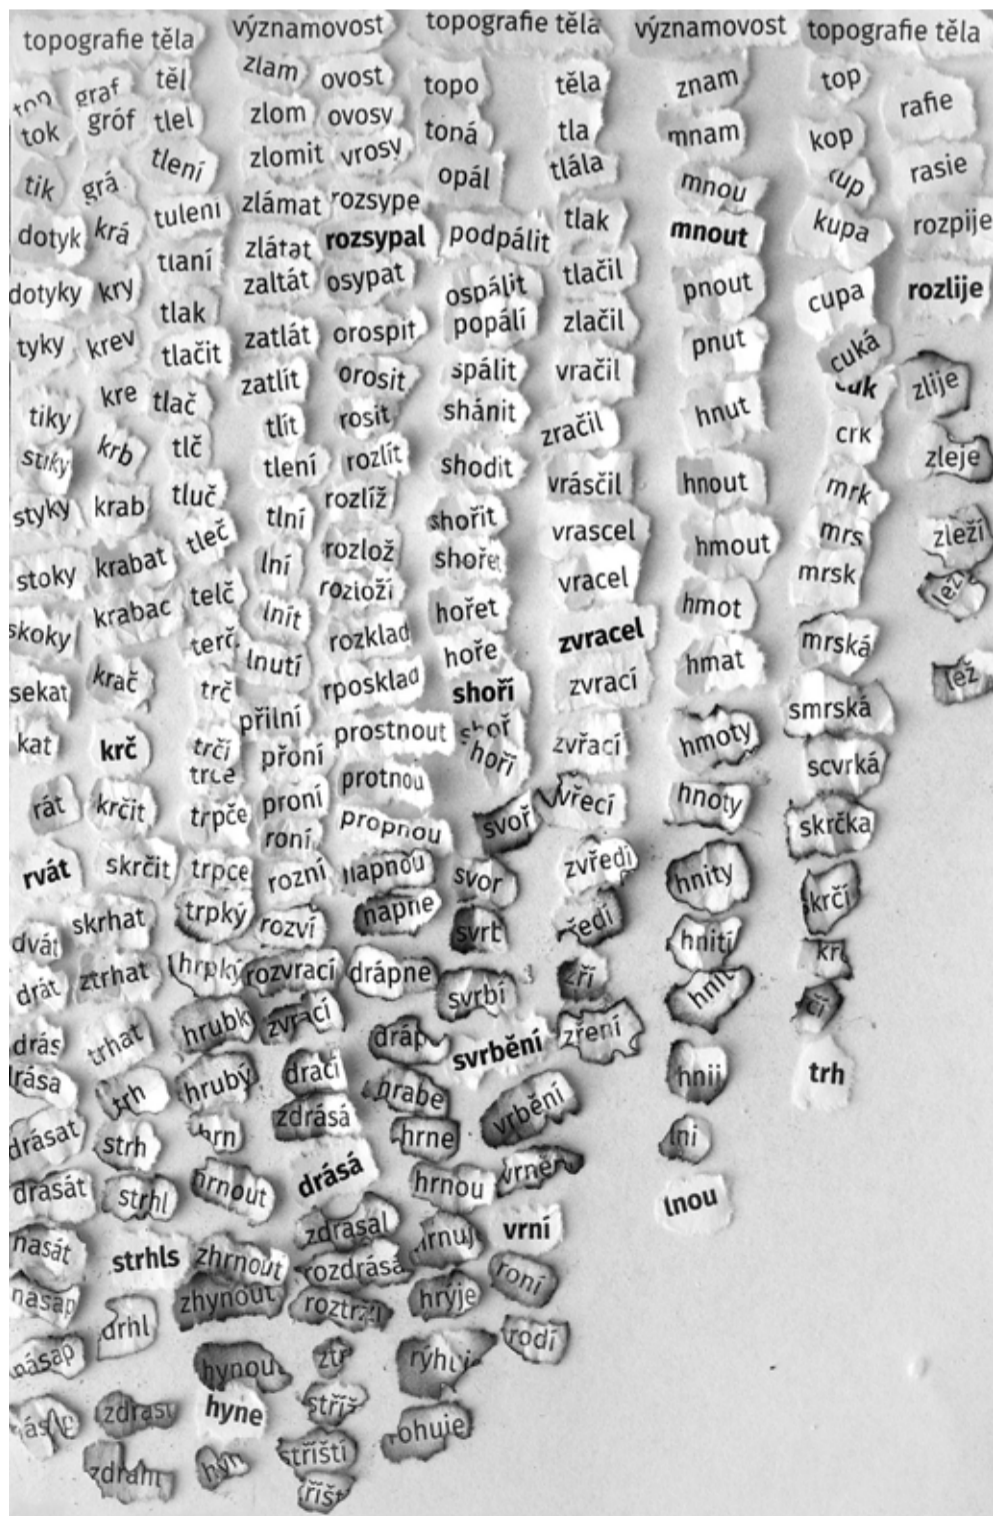 topografie těla
významovost
topografie těla
významovost
topografie těla
tok
tik
dotyk
dotyky
tyky
tiky
styky
stoky
skoky
sekat
kat
rát
rvát
dvát
drát
drás
drásat
drasát
nasát
nasáp
násap
graf
gróf
grá
krá
kry
krev
kre
krb
krab
krabat
krabac
krač
krč
krčit
skrčit
skrhat
ztrhat
trhat
trh
strh
strhl
strhls
drhl
těl
tlel
tlení
tulení
tlaní
tlak
tlačit
tlač
tlč
tluč
tleč
telč
terč
trč
trčí
trče
trpče
trpce
trpký
hrpký
hrubý
hrnout
zhrnout
zhynout
hynou
hyne
hyn
zlam
zlom
zlomit
zlámat
zlátat
zaltát
zatlát
zatlít
tlít
tlení
tlní
lní
lnít
lnutí
přilní
přoní
proní
roní
rozní
rozví
rozvrací
zvrací
drací
zdrásá
drásá
zdrásal
rozdrása
ztr
stříští
ovost
ovosy
vrosy
rozsype
rozsypal
osypat
orospit
orosit
rosit
rozlít
rozlíž
rozlož
rozloží
rozklad
rposklad
prostnout
protnou
propnou
napnou
napne
drápne
dráp
hrabe
hrne
hrnou
hrnuj
hrýje
topo
toná
opál
podpálit
ospálit
popálí
spálit
shánit
shodit
shořit
shořet
hořet
hoře
shoří
shoř
hoří
svoř
svor
svrb
svrbí
svrbění
vrbění
vrně
vrní
roní
rodí
těla
tla
tlála
tlak
tlačil
zlačil
vračil
zračil
vrásčil
vrascel
vracel
zvracel
zvrací
zvřací
vřecí
zvředí
ředí
zří
zření
znam
mnam
mnou
mnout
pnout
pnut
hnut
hnout
hmout
hmot
hmat
hmoty
hnoty
hnity
hnití
hnit
hnij
lni
lnou
top
kop
kup
kupa
cupa
cuká
cuk
crk
mrk
mrs
mrsk
mrská
smrská
scvrká
skrčka
skrčí
krč
čí
trh
rafie
rasie
rozpije
rozlije
zlije
zleje
zleží
lež